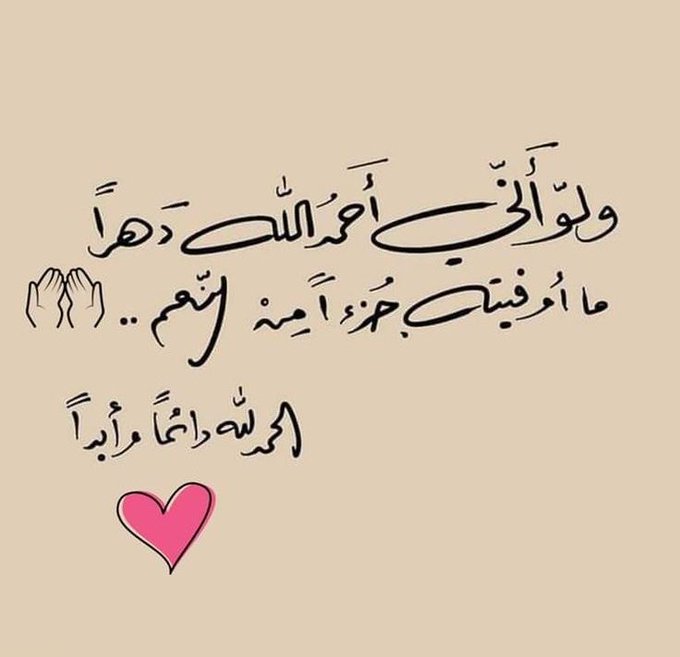 ولوّ أَنّي أَحمُد اللّه دَهراً
ما اوفيته جُزءاً مِنْ النّعم ..
الحمدللّه دائماً وأبداً